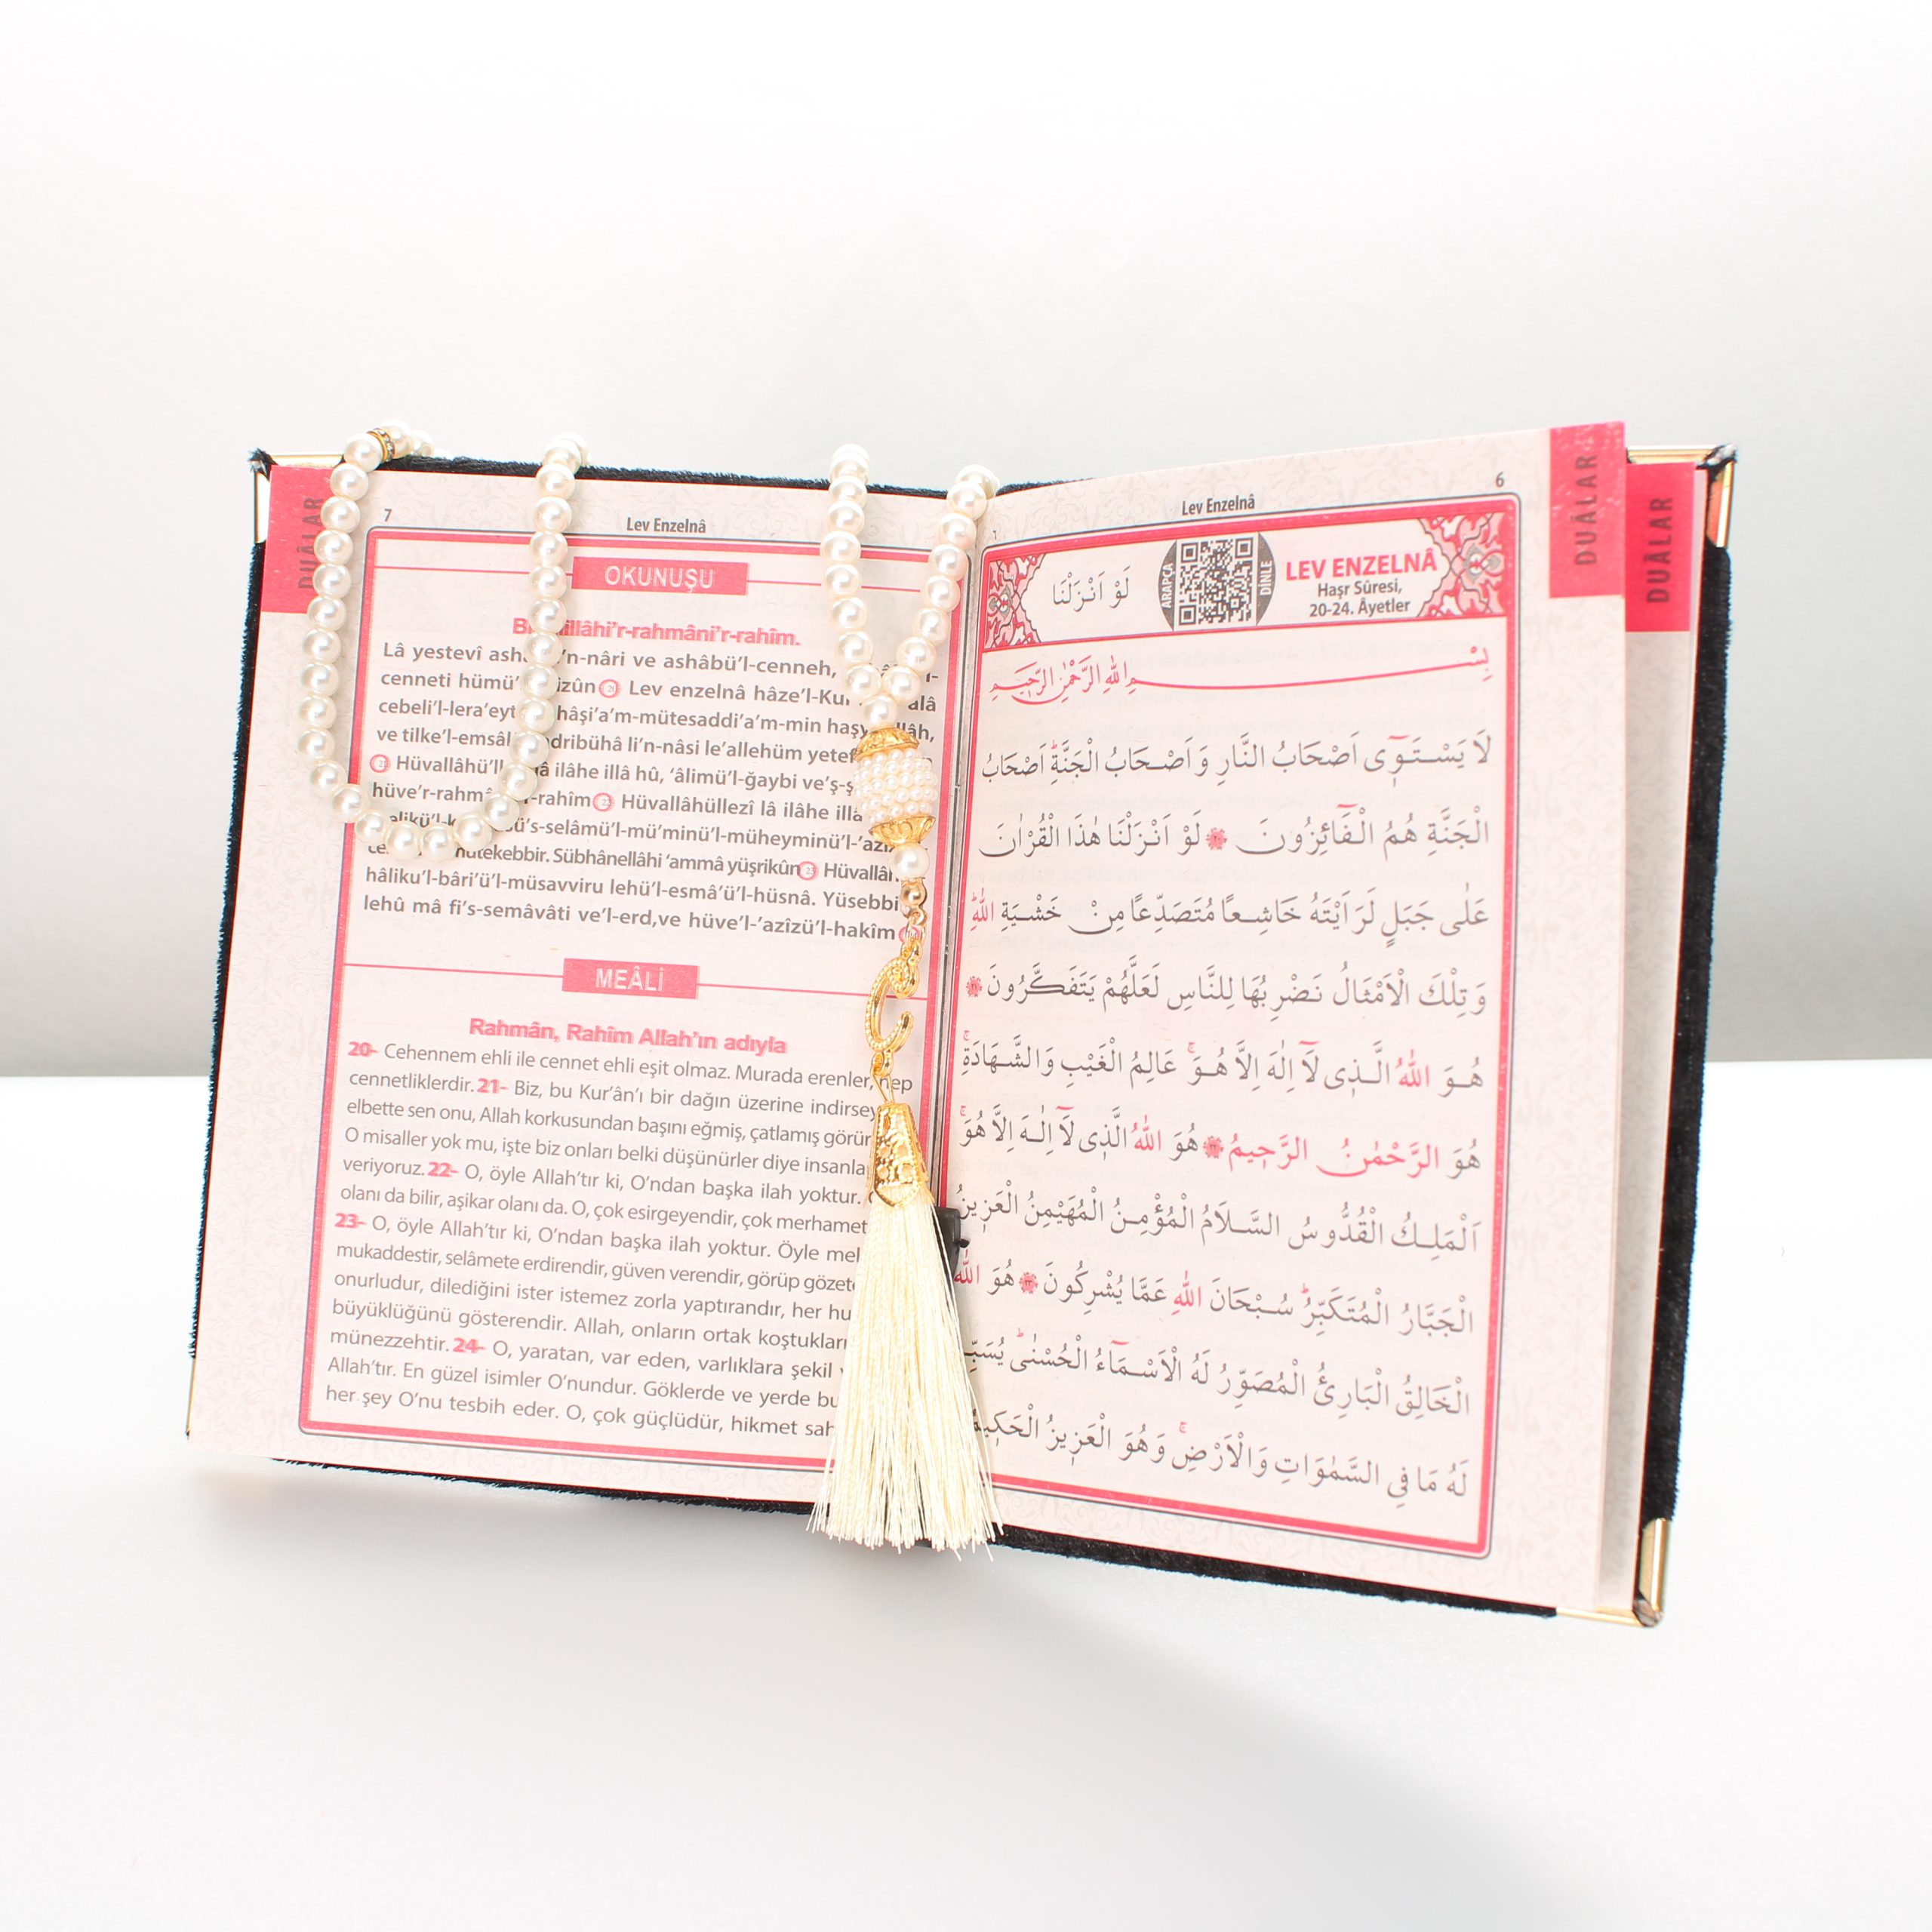 DUÂLAR
DUÂLAR
6
Lev Enzelnâ
لَوْ اَنْزَلْنَا
ARAPÇA
DİNLE
LEV ENZELNÂ
Haşr Sûresi,
20-24. Âyetler
بِسْمِ اللّٰهِ الرَّحْمٰنِ الرَّح۪يمِ
لَا يَسْتَو۪ٓى اَصْحَابُ النَّارِ وَاَصْحَابُ الْجَنَّةِۜ اَصْحَابُ
الْجَنَّةِ هُمُ الْفَٓائِزُونَ لَوْ اَنْزَلْنَا هٰذَا الْقُرْاٰنَ
عَلٰى جَبَلٍ لَرَاَيْتَهُ خَاشِعًا مُتَصَدِّعًا مِنْ خَشْيَةِ اللّٰهِۜ
وَتِلْكَ الْاَمْثَالُ نَضْرِبُهَا لِلنَّاسِ لَعَلَّهُمْ يَتَفَكَّرُونَ
هُوَ اللّٰهُ الَّذ۪ى لَٓا اِلٰهَ اِلَّا هُوَۚ عَالِمُ الْغَيْبِ وَالشَّهَادَةِۚ
هُوَ الرَّحْمٰنُ الرَّح۪يمُ هُوَ اللّٰهُ الَّذ۪ى لَٓا اِلٰهَ اِلَّا هُوَۚ
اَلْمَلِكُ الْقُدُّوسُ السَّلَامُ الْمُؤْمِنُ الْمُهَيْمِنُ الْعَز۪يزُ
الْجَبَّارُ الْمُتَكَبِّرُۜ سُبْحَانَ اللّٰهِ عَمَّا يُشْرِكُونَ هُوَ اللّٰهُ
الْخَالِقُ الْبَارِئُ الْمُصَوِّرُ لَهُ الْاَسْمَٓاءُ الْحُسْنٰىۜ يُسَبِّ
لَهُ مَا فِى السَّمٰوَاتِ وَالْاَرْضِۚ وَهُوَ الْعَز۪يزُ الْحَك۪يمُ
DUÂLAR
7
Lev Enzelnâ
OKUNUŞU
illâhi’r-rahmâni’r-rahîm.
Lâ yestevî ’n-nâri ve ashâbü’l-cenneh,
cenneti hümü’ izûn 20 Lev enzelnâ hâze’l-Kur alâ
cebeli’l-lera’eyt hâşi’a’m-mütesaddi’a’m-min haşy llâh,
ve tilke’l-emsâl dribühâ li’n-nâsi le’allehüm yetef
Hüvallâhü’ll â ilâhe illâ hû, ‘âlimü’l-ğaybi ve’ş-ş
hüve’r-rahm -rahîm 22 Hüvallâhüllezî lâ ilâhe illâ
ü’s-selâmü’l-mü’minü’l-müheyminü’l-’azî
mütekebbir. Sübhânellâhi ‘ammâ yüşrikûn 23 Hüvallâh
hâliku’l-bâri’ü’l-müsavviru lehü’l-esmâ’ü’l-hüsnâ. Yüsebbi
lehû mâ fi’s-semâvâti ve’l-erd,ve hüve’l-’azîzü’l-hakîm
MEÂLİ
Rahmân, Rahîm Allah’ın adıyla
20- Cehennem ehli ile cennet ehli eşit olmaz. Murada erenler, hep
cennetliklerdir. 21- Biz, bu Kur’ân’ı bir dağın üzerine indirsey
elbette sen onu, Allah korkusundan başını eğmiş, çatlamış görür
O misaller yok mu, işte biz onları belki düşünürler diye insanla
veriyoruz. 22- O, öyle Allah’tır ki, O’ndan başka ilah yoktur.
olanı da bilir, aşikar olanı da. O, çok esirgeyendir, çok merhamet
23- O, öyle Allah’tır ki, O’ndan başka ilah yoktur. Öyle mel
mukaddestir, selâmete erdirendir, güven verendir, görüp gözete
onurludur, dilediğini ister istemez zorla yaptırandır, her hu
büyüklüğünü gösterendir. Allah, onların ortak koştukları
münezzehtir. 24- O, yaratan, var eden, varlıklara şekil
Allah’tır. En güzel isimler O’nundur. Göklerde ve yerde bu
her şey O’nu tesbih eder. O, çok güçlüdür, hikmet sah